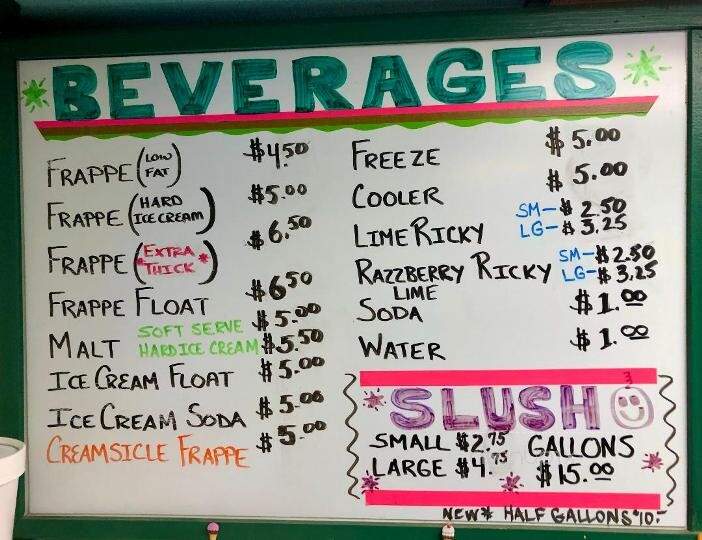 BEVERAGES
FRAPPE (LOW FAT) $4.50
FRAPPE (HARD ICE CREAM) $5.00
FRAPPE (*EXTRA THICK*) $6.50
FRAPPE FLOAT $6.50
MALT SOFT SERVE $5.00
HARD ICE CREAM $5.50
ICE CREAM FLOAT $5.00
ICE CREAM SODA $5.00
CREAMSICLE FRAPPE $5.00
FREEZE $5.00
COOLER $5.00
LIME RICKY SM- $2.50
LG- $3.25
RAZZBERRY LIME RICKY SM- $2.50
LG- $3.25
SODA $1.00
WATER $1.00
SLUSH
SMALL $2.75 GALLONS
LARGE $4.75 $15.00
NEW* HALF GALLONS $10.-